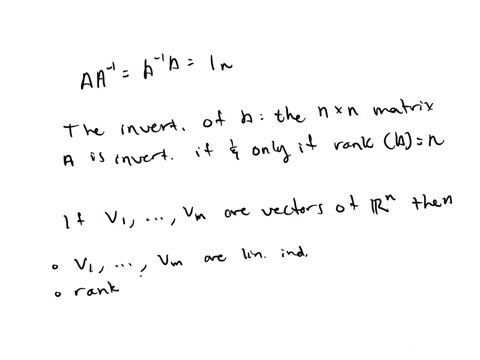 AA⁻¹ = A⁻¹A = Iₙ
The invert. of A: the n×n matrix
A is invert. if & only if rank (A)=n
If V₁, ..., Vₘ are vectors of ℝⁿ then
• V₁, ..., Vₘ are lin. ind.
• rank